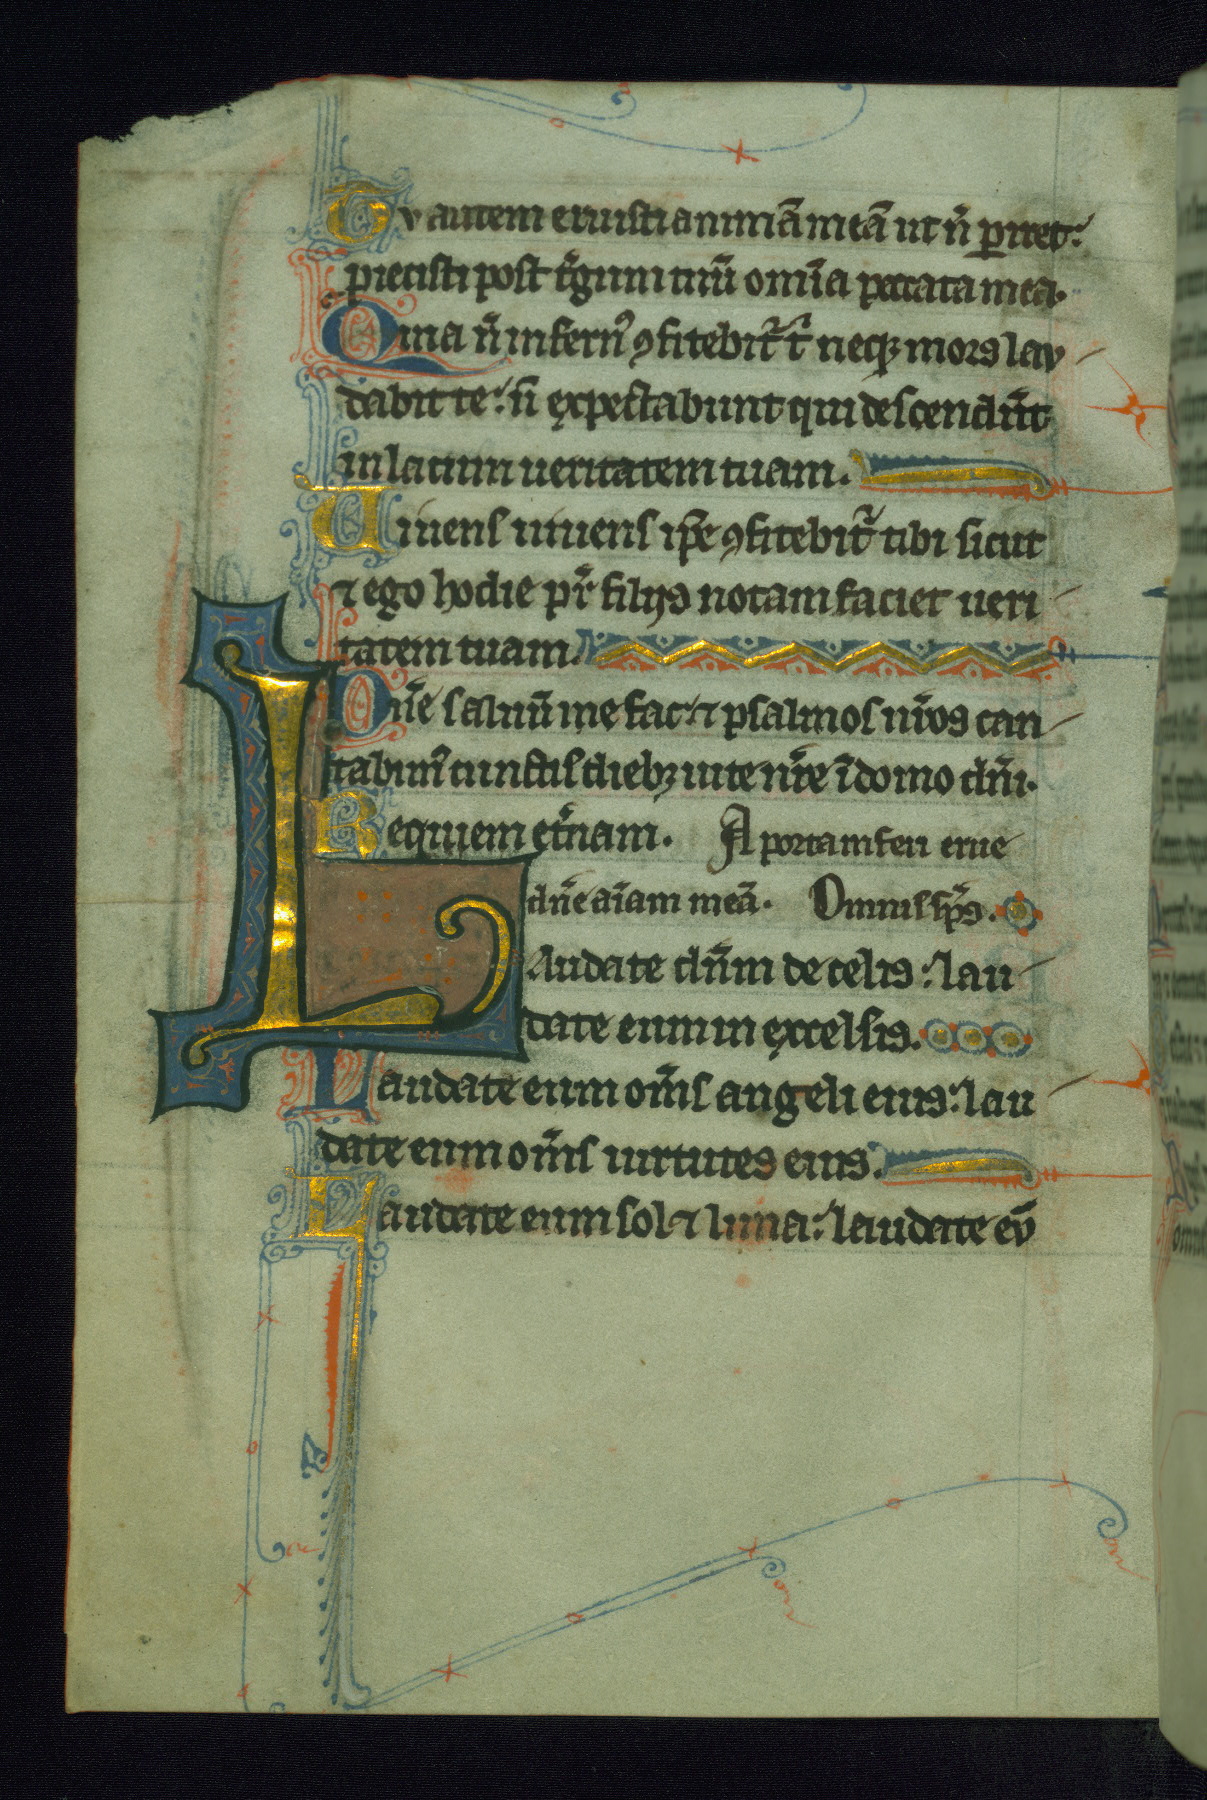 Tv autem eruisti animā meā ut n̄ ꝑiret:
piecisti post t̾gum tuū om̄ia peccata mea.
Quia n̄ infern᾽ ꝯfitebit᷑ t̾ neqꝫ mors lav
dabit te: n̄ expectabunt qui descendūt
in lacum ueritatem tuam.
Viuens uiuens ip̄e ꝯfitebit᷑ tibi sicut
⁊ ego hodie pr̄ filijs notam faciet ueri
tatem tuam.
Dn̄e saluū me fac: ⁊ psalmos nr̄os can
tabim᾽ cunctis diebꝫ uite nr̄e ī domo dn̄i.
Requiem et̾nam. A porta inferi erue
dn̄e aīam meā. Omnis sp̄s.
Laudate dn̄m de celis: lau
date eum in excelsis.
Laudate eum om̄s angeli eius: lau
date eum om̄s uirtutes eius.
Laudate eum sol ⁊ luna: laudate eū